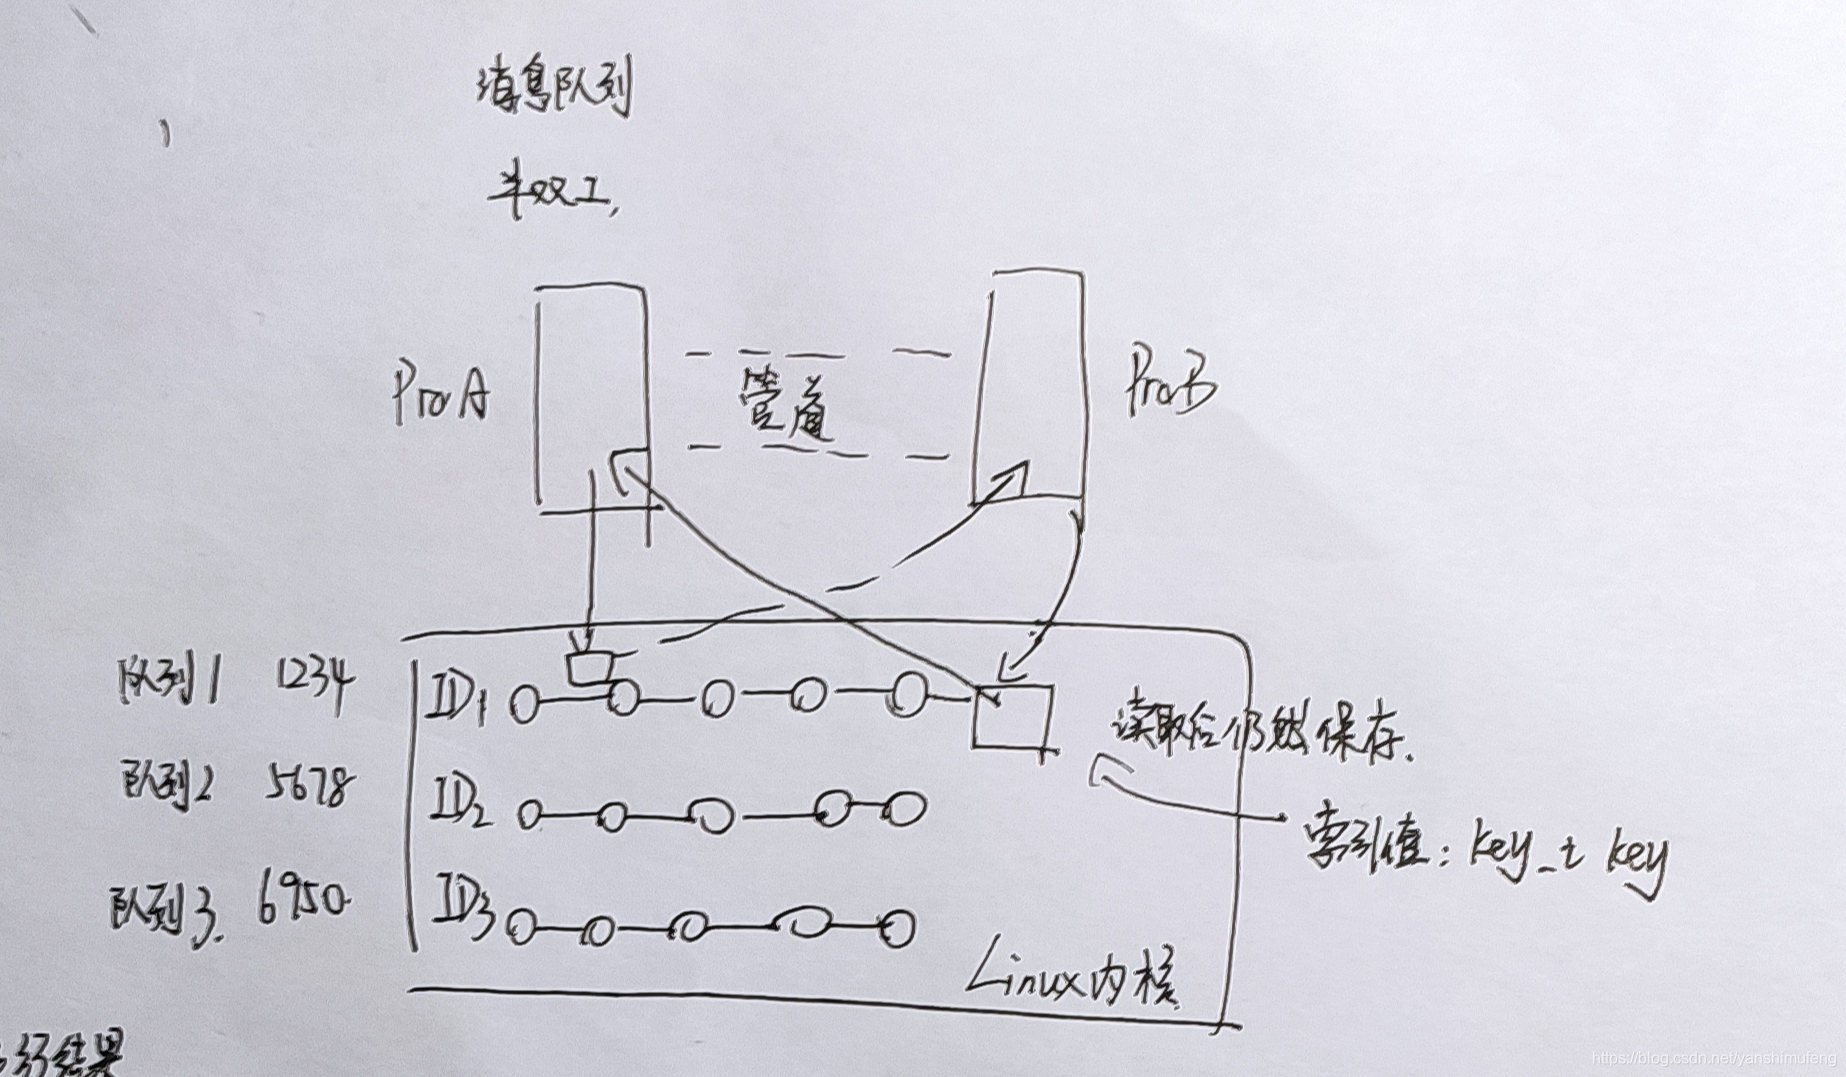 消息队列
半双工,
ProA
管道
ProB
队列1 1234
ID1
读取后仍然保存.
队列2 5678
ID2
索引值: key_t key
队列3. 6950
ID3
Linux内核
行结果
https://blog.csdn.net/yanshimufeng